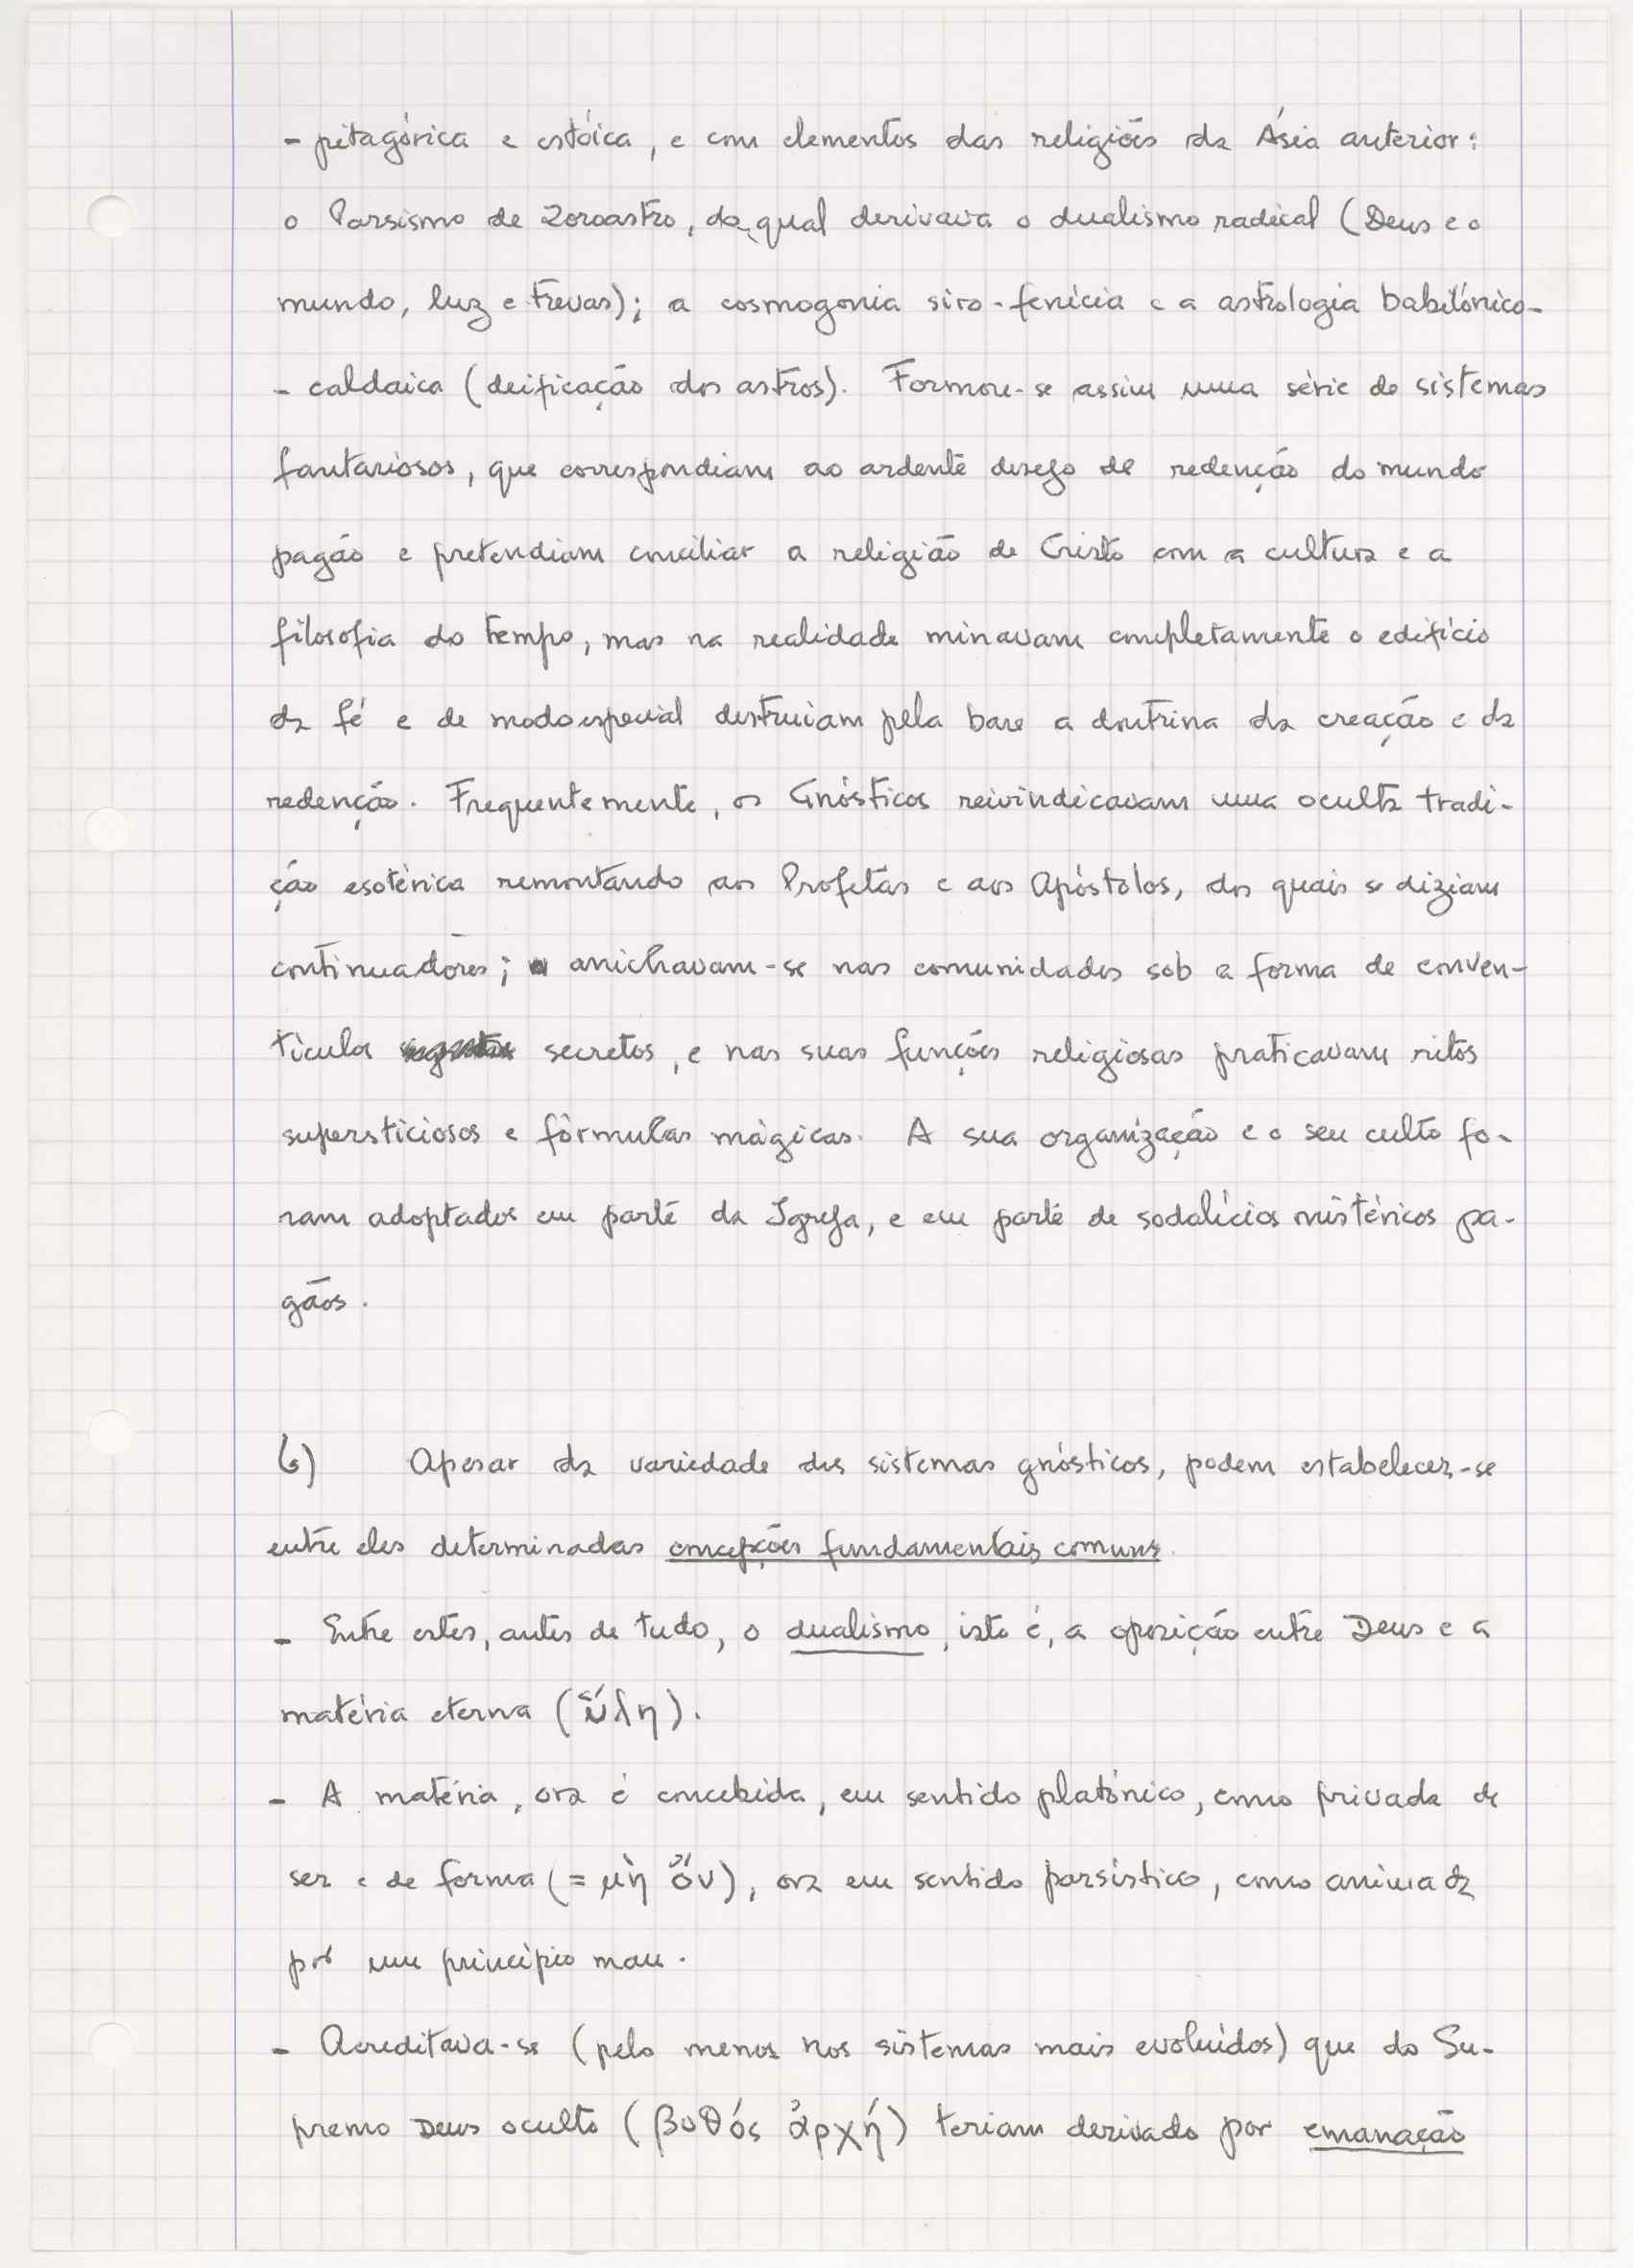 - pitagórica e estóica, e com elementos das religiões da Ásia anterior:
o Parsismo de Zoroastro, do qual derivava o dualismo radical (Deus e o
mundo, luz e trevas); a cosmogonia siro-fenícia e a astrologia babilónico-
- caldaica (deificação dos astros). Formou-se assim uma série de sistemas
fantasiosos, que correspondiam ao ardente desejo de redenção do mundo
pagão e pretendiam conciliar a religião de Cristo com a cultura e a
filosofia do tempo, mas na realidade minavam completamente o edifício
da fé e de modo especial destruiam pela base a doutrina da creação e da
redenção. Frequentemente, os Gnósticos reivindicavam uma oculta tradi-
ção esotérica remontando aos Profetas e aos Apóstolos, dos quais se diziam
continuadores; anichavam-se nas comunidades sob a forma de conven-
tículos secretos, e nas suas funções religiosas praticavam ritos
supersticiosos e fórmulas mágicas. A sua organização e o seu culto fo-
ram adoptados em parte da Igreja, e em parte de sodalícios mistéricos pa-
gãos.
b) Apesar da variedade dos sistemas gnósticos, podem estabelecer-se
entre eles determinadas concepções fundamentais comuns.
- Entre estes, antes de tudo, o dualismo, isto é, a oposição entre Deus e a
matéria eterna (ὕλη).
- A matéria, ora é concebida, em sentido platónico, como privada de
ser e de forma (= μὴ ὄν), ora em sentido parsístico, como animada
por um princípio mau.
- Acreditava-se (pelo menos nos sistemas mais evoluídos) que do Su-
premo Deus oculto (βυθός ἀρχή) teriam derivado por emanação